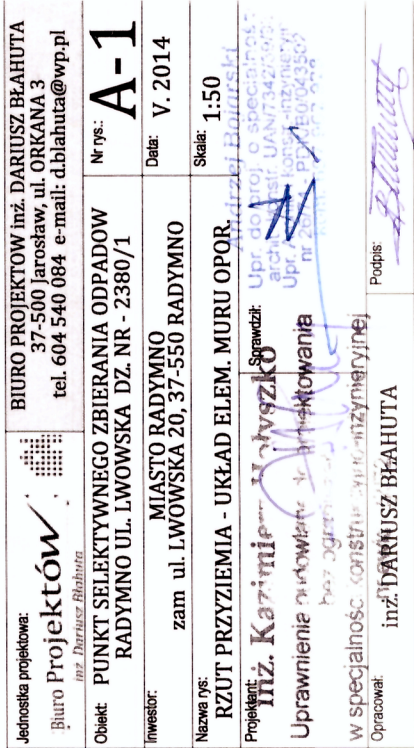 Jednostka projektowa:
Biuro Projektów
inż Dariusz Błahuta
BIURO PROJEKTOW inż. DARIUSZ BŁAHUTA
37-500 Jarosław, ul. ORKANA 3
tel. 604 540 084 e-mail: d.blahuta@wp.pl
Obiekt:
PUNKT SELEKTYWNEGO ZBIERANIA ODPADOW
RADYMNO UL. LWOWSKA DZ. NR - 2380/1
Nr rys.:
A-1
Inwestor:
MIASTO RADYMNO
zam ul. LWOWSKA 20, 37-550 RADYMNO
Data:
V. 2014
Nazwa rys:
RZUT PRZYZIEMIA - UKŁAD ELEM. MURU OPOR.
Skala:
1:50
Projektant:
inż. Kazimierz
Uprawnienia budowlane
w specjalności konstrukcyjno-inżynieryjnej
Sprawdził:
Andrzej Bojarski
Upr. do proj. o specjalnosc
Opracował:
inż. DARIUSZ BŁAHUTA
Podpis: